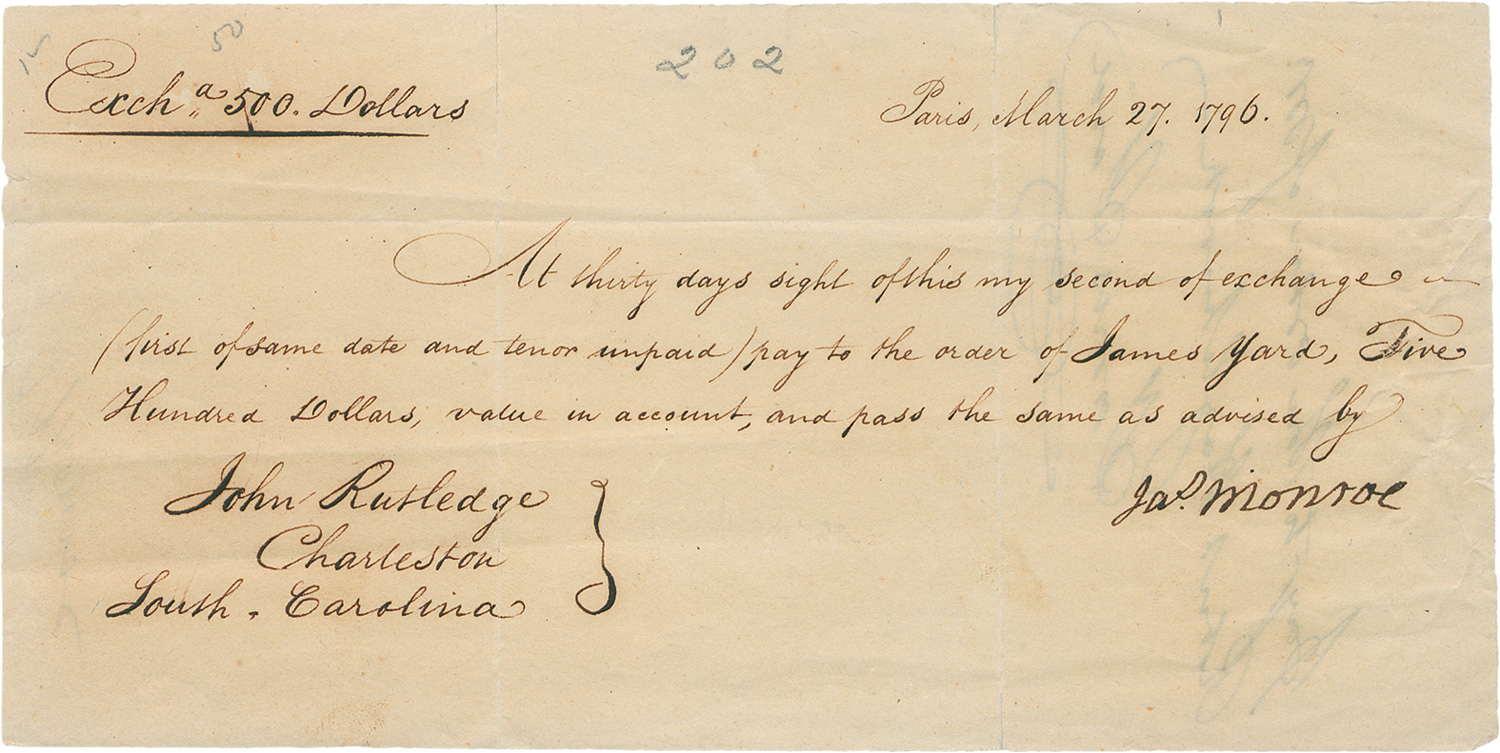 50
202
Exchᵃ 500. Dollars
Paris, March 27. 1796.
At thirty days sight of this my second of exchange
(first of same date and tenor unpaid) pay to the order of James Yard, Five
Hundred Dollars, value in account, and pass the same as advised by
Jaˢ. Monroe
John Rutledge
Charleston
South. Carolina